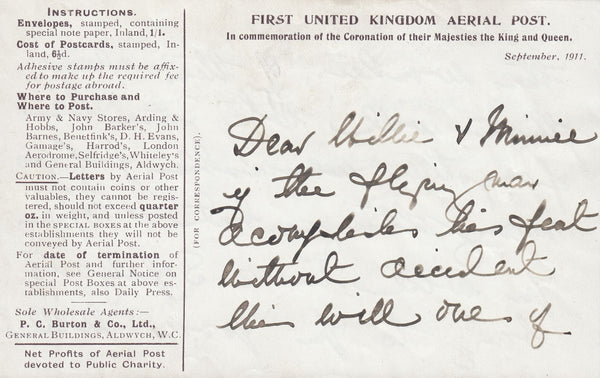 INSTRUCTIONS.
Envelopes, stamped, containing
special note paper, Inland, 1/1.
Cost of Postcards, stamped, In-
land, 6½d.
Adhesive stamps must be affix-
ed to make up the required fee
for postage abroad.
Where to Purchase and
Where to Post.
Army & Navy Stores, Arding &
Hobbs, John Barker's, John
Barnes, Benetfink's, D. H. Evans,
Gamage's, Harrod's, London
Aerodrome, Selfridge's, Whiteley's
and General Buildings, Aldwych.
CAUTION.—Letters by Aerial Post
must not contain coins or other
valuables, they cannot be regis-
tered, should not exceed quarter
oz. in weight, and unless posted
in the SPECIAL BOXES at the above
establishments they will not be
conveyed by Aerial Post.
For date of termination of
Aerial Post and further informa-
tion, see General Notice on
special Post Boxes at above es-
tablishments, also Daily Press.
Sole Wholesale Agents:—
P. C. Burton & Co., Ltd.,
GENERAL BUILDINGS, ALDWYCH, W.C.
Net Profits of Aerial Post
devoted to Public Charity.
(FOR CORRESPONDENCE).
FIRST UNITED KINGDOM AERIAL POST.
In commemoration of the Coronation of their Majesties the King and Queen.
September, 1911.
Dear Willie & Minnie
if the flying man
acomplishes his feat
without accident
this will one of